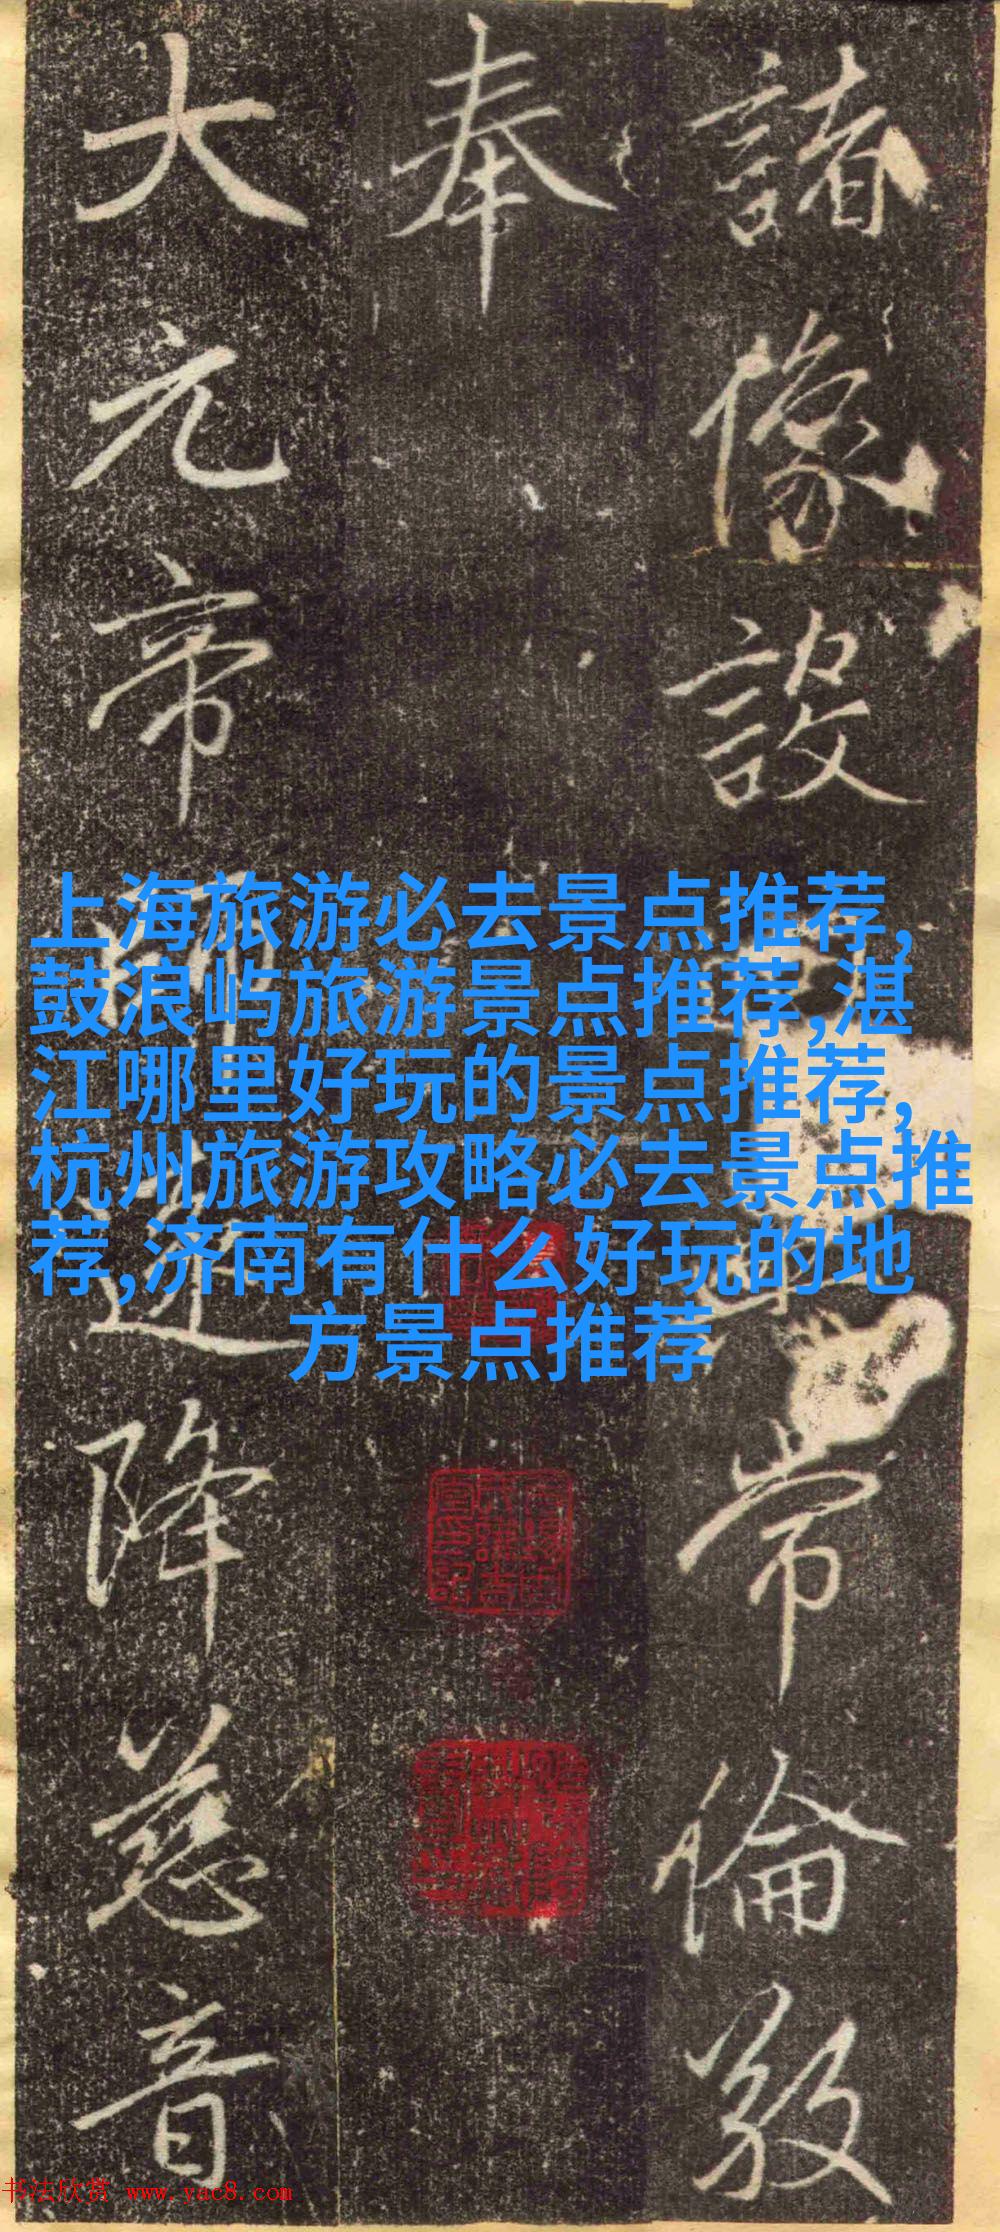 諸像設
常倫敎
奉
大元帝
降慈音
上海旅游必去景点推荐,
鼓浪屿旅游景点推荐,湛
江哪里好玩的景点推荐,
杭州旅游攻略必去景点推
荐,济南有什么好玩的地
方景点推荐
书法欣赏 www.yac8.com